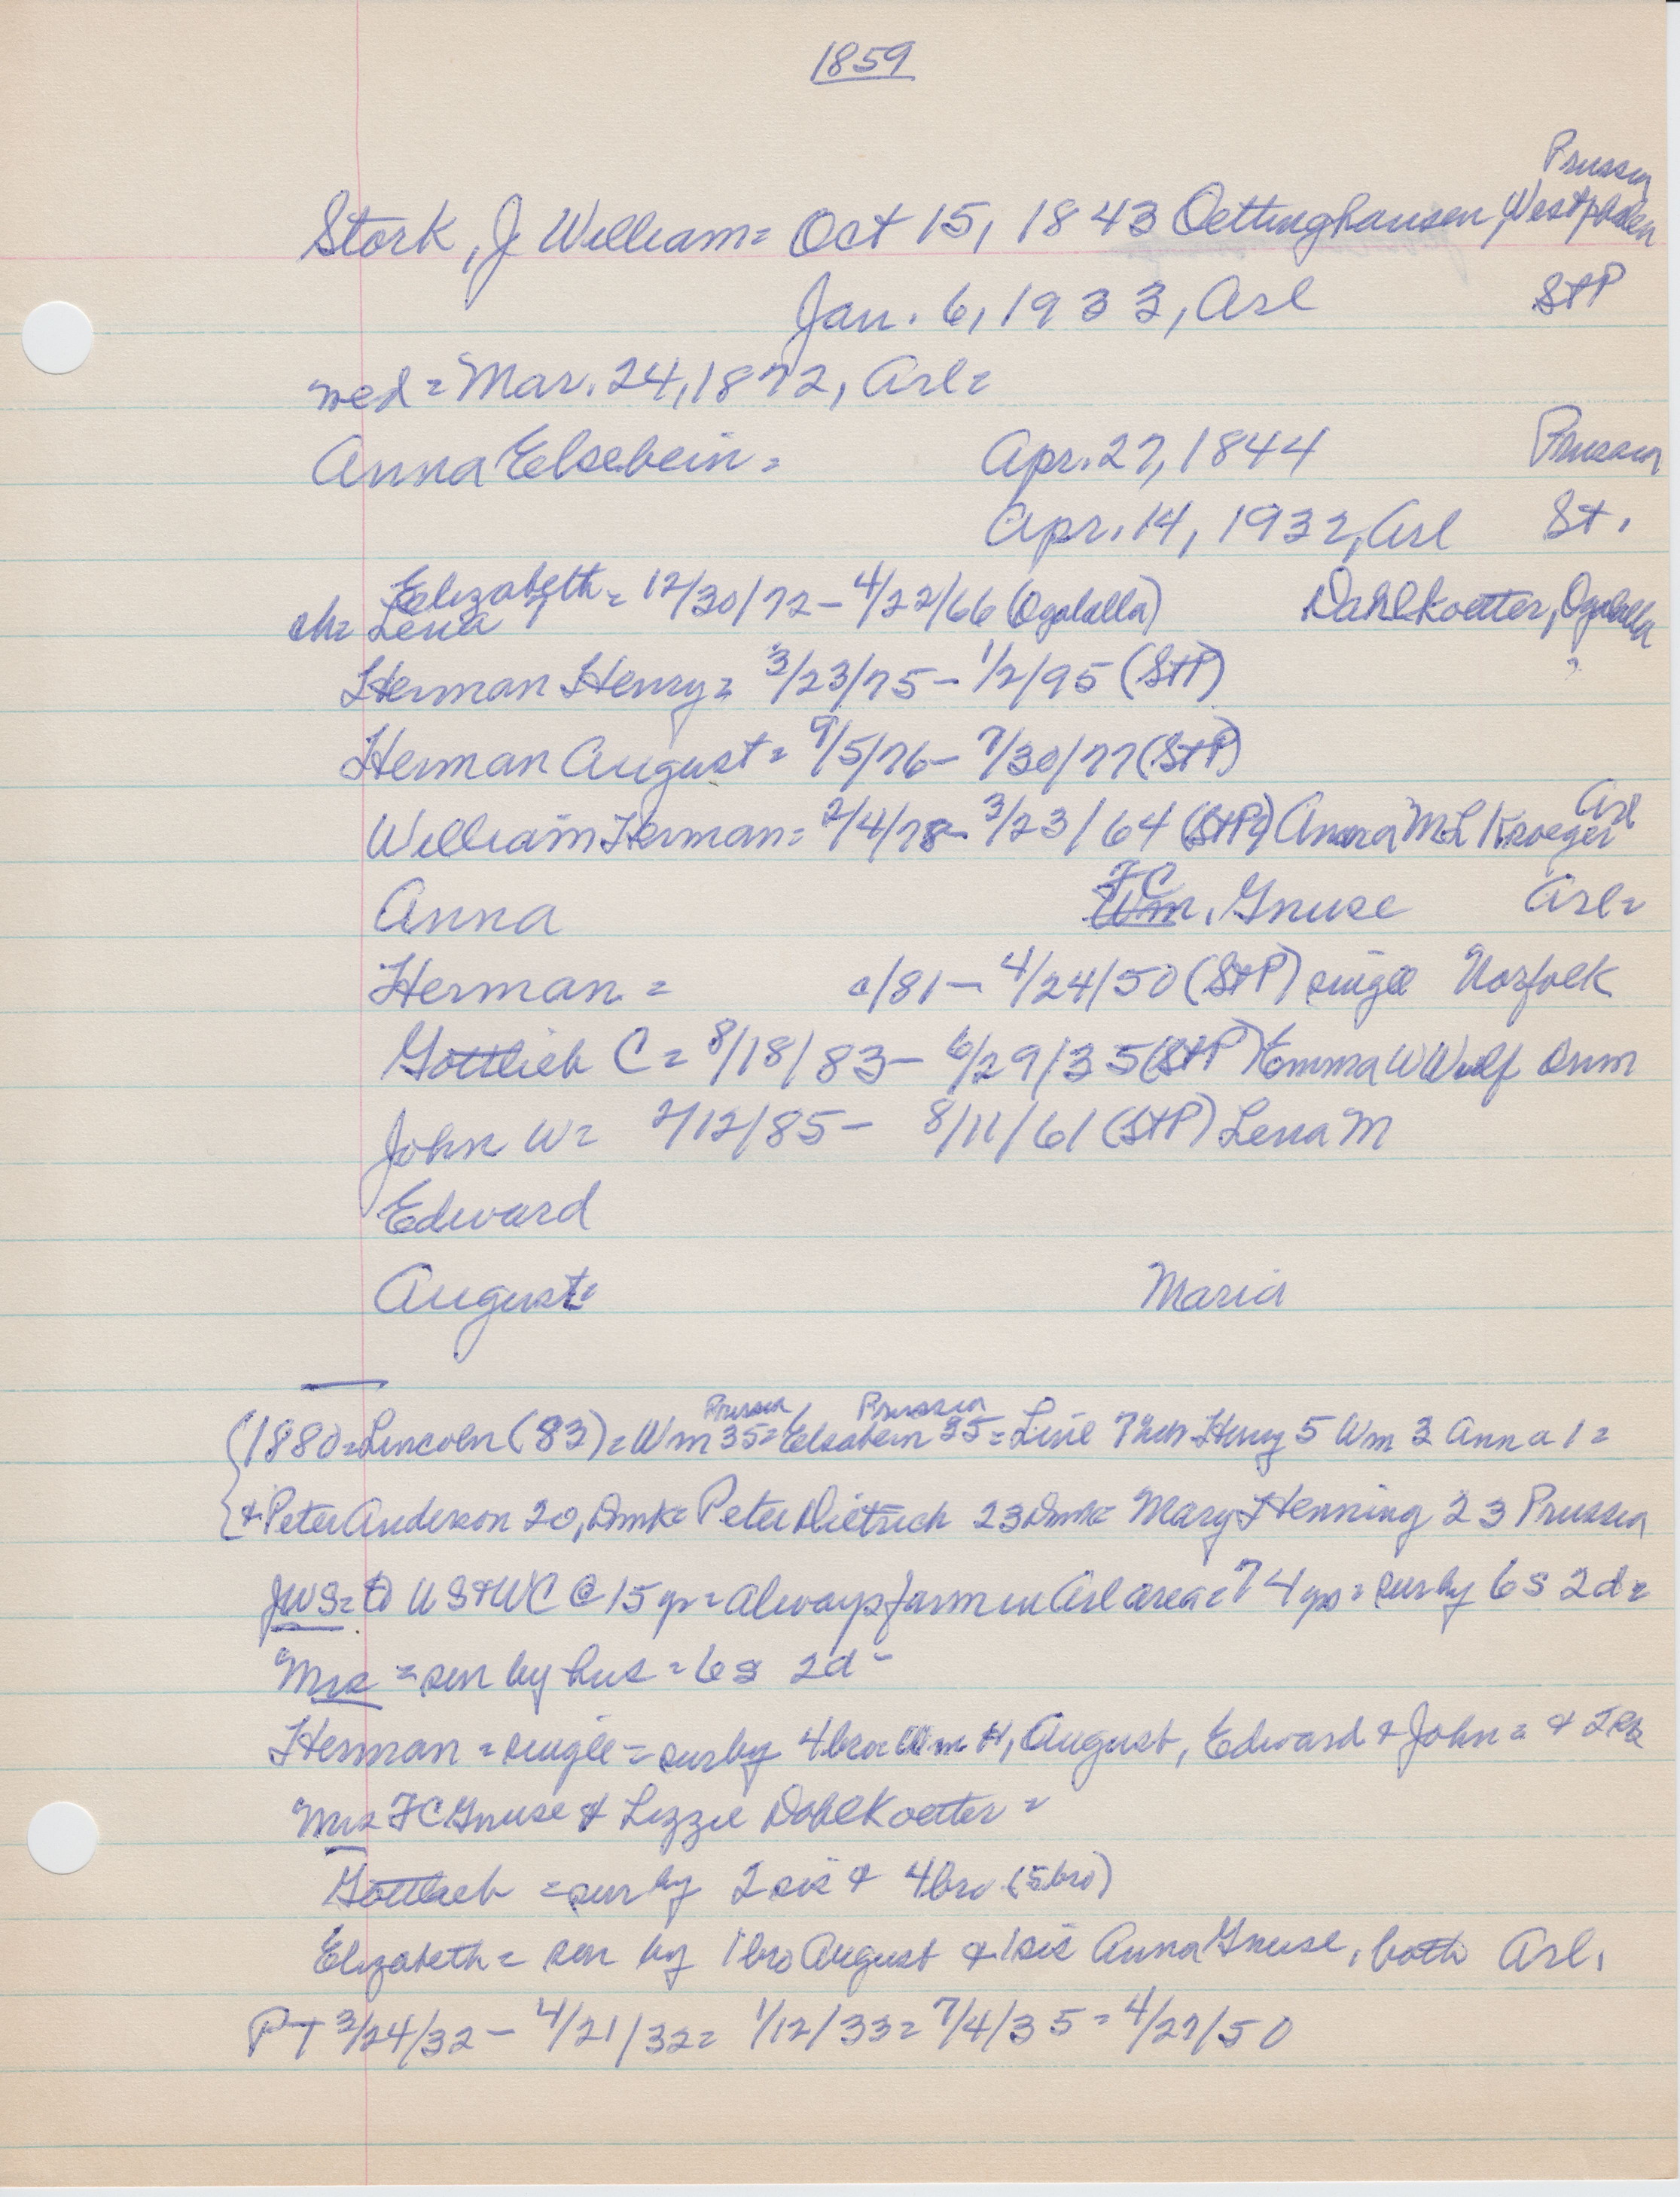 1859
Prussia
Stork, J William = Oct 15, 1843 Oettinghausen, Westphalen
Jan. 6, 1933, Arl StP
wed = Mar. 24, 1872, Arl =
Anna Elsebein = Apr. 27, 1844 Prussia
Apr. 14, 1932, Arl St.
Elizabeth = 12/30/72 - 4/22/66 (Ogalalla) Dahlkoetter, Ogalalla
ch = Lena ?
Herman Henry = 3/23/75 - 1/2/95 (StP)
Herman August = 9/5/76 - 7/30/77 (StP)
Arl
William Herman = 2/4/78 - 3/23/64 (StP) Anna M L Kroeger
FC
Anna Wm. Gnuse Arl =
Herman = c/81 - 4/24/50 (StP) single Norfolk
Gottlieb C = 8/18/83 - 6/29/35 (StP) Emma W Wulf
John W = 2/12/85 - 8/11/61 (StP) Lena M
Edward
August = Maria
Prussia Prussia
(1880 = Lincoln (83) = Wm 35 = Elsabein 35 = Line 7 Henry 5 Wm 3 Anna 1 =
+ Peter Anderson 20, Dmk = Peter Dietrich 23 Dmk = Mary Henning 23 Prussia
JWS = to US + WC @ 15 yr = always farm in Arl area = 74 yrs = sur by 6s 2d =
Mrs = sur by hus = 6s 2d -
Herman = single = sur by 4 bro Wm H, August, Edward & John = &
Mrs FC Gnuse & Lizzie Dahlkoetter =
Gottlieb = sur by 2 sis & 4 bro (5 bro)
Elizabeth = sur by 1 bro August & 1 sis Anna Gnuse, both Arl.
PT 3/24/32 - 4/21/32 = 1/12/33 = 7/4/35 = 4/27/50